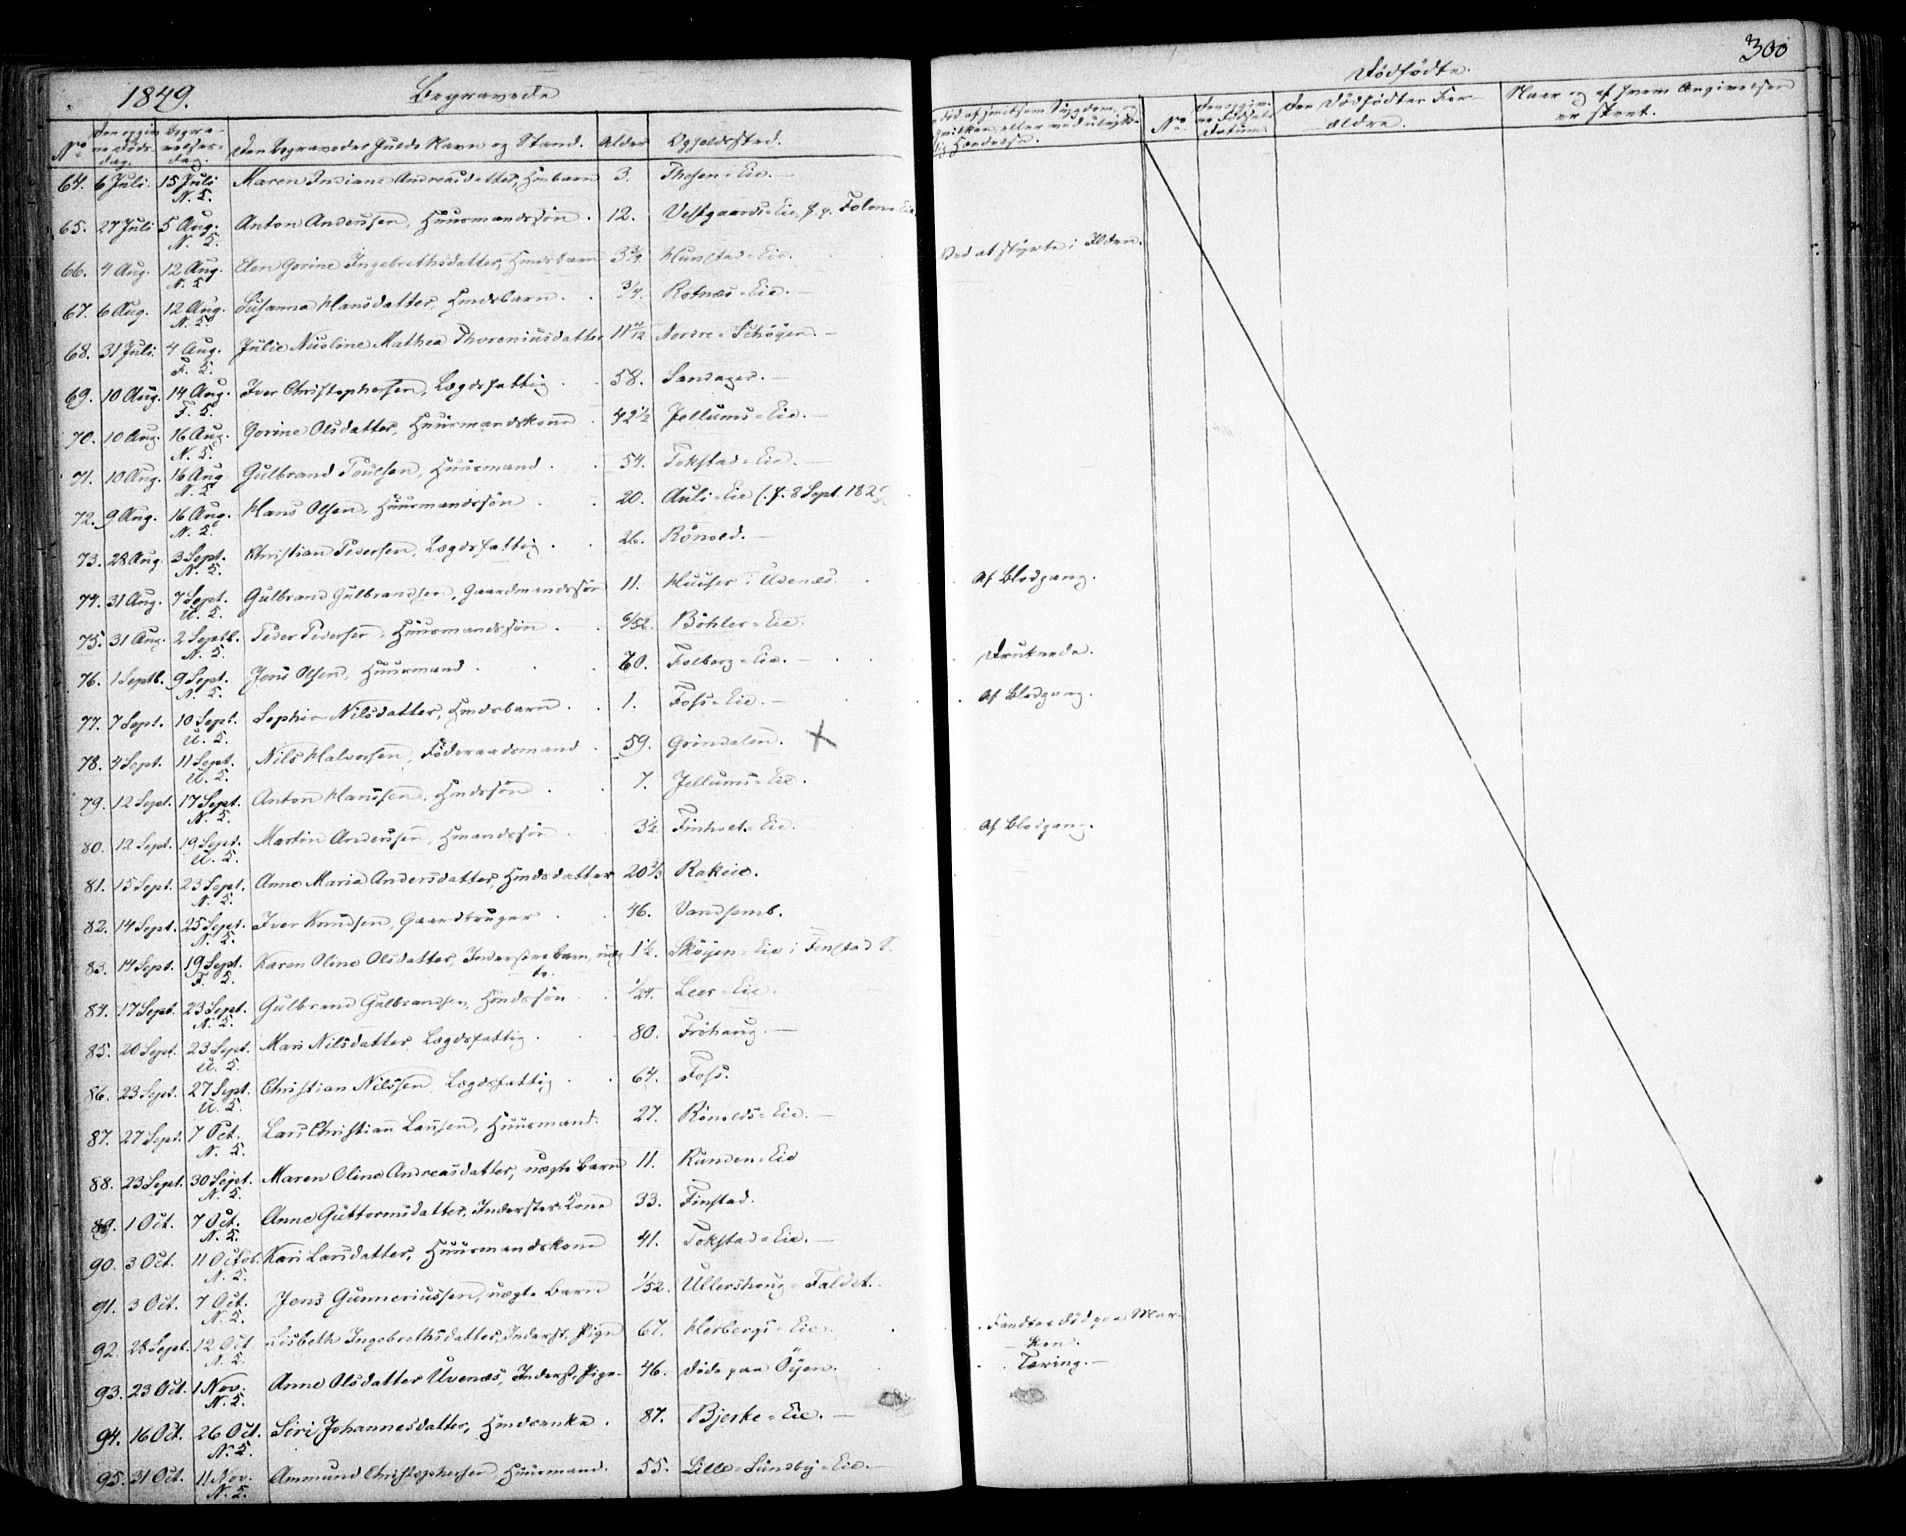 1849. Begravede
No Den opgivne Døds-dag. Begravelses-dag Den Begravedes fulde Navn og Stand. Alder Opholdssted.
64. 6 Juli. 15 Juli N. K. Maren Indiane Andreasdatter, Hmbarn 3. Thesen-Eie.
65. 27 Juli 5 Aug. N. K. Anton Andersen, Huusmandssøn. 12. Vestgaards-Eie,
66. 4 Aug. 12 Aug. N. K. Elen Gorine Ingebrethsdatter, Hmdsbarn 3 3/4. Hunstad-Eie.
67. 6 Aug. 12 Aug. N. K. Susanna Hansdatter, Hmdsbarn. 3/4. Rotnæs-Eie.
68. 31 Juli. 4 Aug. F. K. Julie Nicoline Mathea Thoreniusdatter 11/12 Nordre-Schøyen.
69. 10 Aug. 14 Aug. F. K. Iver Christophersen, Lægdsfattig. 58. Sandager.
70. 10 Aug. 16 Aug. N. K. Gorine Olsdatter, Huusmandskone. 42 1/2 Jellums-Eie.
71. 10 Aug. 16 Aug N. K Gulbrand Poulsen, Huusmand. 54. Tokstad-Eie.
72. 9 Aug. 16 Aug. N. K. Hans Olsen, Huusmandssøn 20. Auli-Eie (f. 8 Sept. 1829
73. 28 Aug. 3 Sept. N. K. Christian Pedersen, Lægdsfattig. 26. Rønold.
74. 31 Aug. 7 Sept. U. K. Gulbrand Gulbrandsen, Gaardmandssøn 11. Huuser i Udenæs.
75. 31 Aug. 2 Septb. N. K. Peder Pedersen, Huusmandssøn. 6/52. Bøhler-Eie.
76. 1 Septb. 9 Sept. N. K. Jens Olsen, Huusmand. 60. Folberg-Eie.
77. 7 Sept. 10 Sept. U. K. Sophie Nilsdatter, Hmdsbarn. 1. Foss-Eie.
78. 4 Sept. 11 Sept. U. K. Nils Halvorsen, Föderaadsmand. 59. Grindalen. X
79. 12 Sept. 17 Sept. N. K. Anton Hanssen, Hmdssøn. 7. Jellums-Eie.
80. 12 Sept. 19 Sept. U. K. Martin Andersen, Hmandssøn. 3 1/2. Finholt-Eie.
81. 15 Sept. 23 Sept. N. K. Anne Maria Andersdatter, Hmdsdatter 20 2/3 Rakeie.
82. 14 Sept. 25 Sept. N. K. Iver Knudsen, Gaardbruger. 46. Vandsemb.
83. 14 Sept. 19 Sept. F. K. Karen Oline Olsdatter, Inderstes Barn, uægte. 1 1/2. Skøyen-Eie i Fenstad S.
84. 17 Sept. 23 Sept. N. K. Gulbrand Gulbrandsen, Hmdssøn. 1/24. Leer-Eie.
85. 20 Sept. 23 Sept. U. K. Mari Nilsdatter, Lægdsfattig. 80. Frøhaug.
86. 23 Sept. 27 Sept. U. K. Christian Nilssen, Lægdsfattig. 64. Foss.
87. 27 Sept. 7 Oct. N. K. Lars Christian Larssen, Huusmand. 27. Rønolds-Eie.
88. 23 Sept. 30 Sept. N. K. Maren Oline Andreasdatter, uægte Barn 11. Runden-Eie
89. 1 Oct. 7 Oct. N. K. Anne Guttormsdatter, Inderstes Kone 33. Finstad.
90. 3 Oct. 11 Octob. N. K. Kari Larsdatter, Huusmandskone 41. Tokstad-Eie.
91. 3 Oct. 7 Oct. N. K. Jens Gunneriussen, uægte Barn 1/52. Ullershoug-Faldet.
92. 28 Sept. 12 Oct. N. K. Lisbeth Ingebrethsdatter, Inderst. Pige 67. Herbergs-Eie.
93. 23 Oct. 1 Nov. N. K. Anne Olsdatter Uvenæs, Inderst. Pige. 46. døde paa Øyen.
94. 16 Oct. 26 Oct. N. K. Siri Johannesdatter, Hmdsenke. 87. Bjerke-Eie.
95. 31 Oct. 11 Nov. N. K. Ammund Christophersen, Huusmand. 55. Lille-Sundby-Eie.
300
Dödfödte.
No. Den opgivne Födsels-datum. Den Dödfödtes Forældre. Naar og af hvem Angivelsen er skeet.
Ved at styrte i Ilden.
Af Blodgang.
Druknede.
Af Blodgang.
Af Blodgang.
Fandtes død paa Marken.
Tæring.